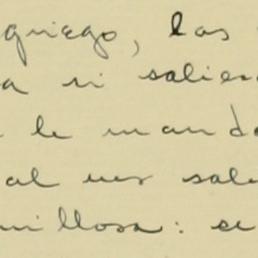 griego, las
a si salie
le manda
al ves sal
millosa: se